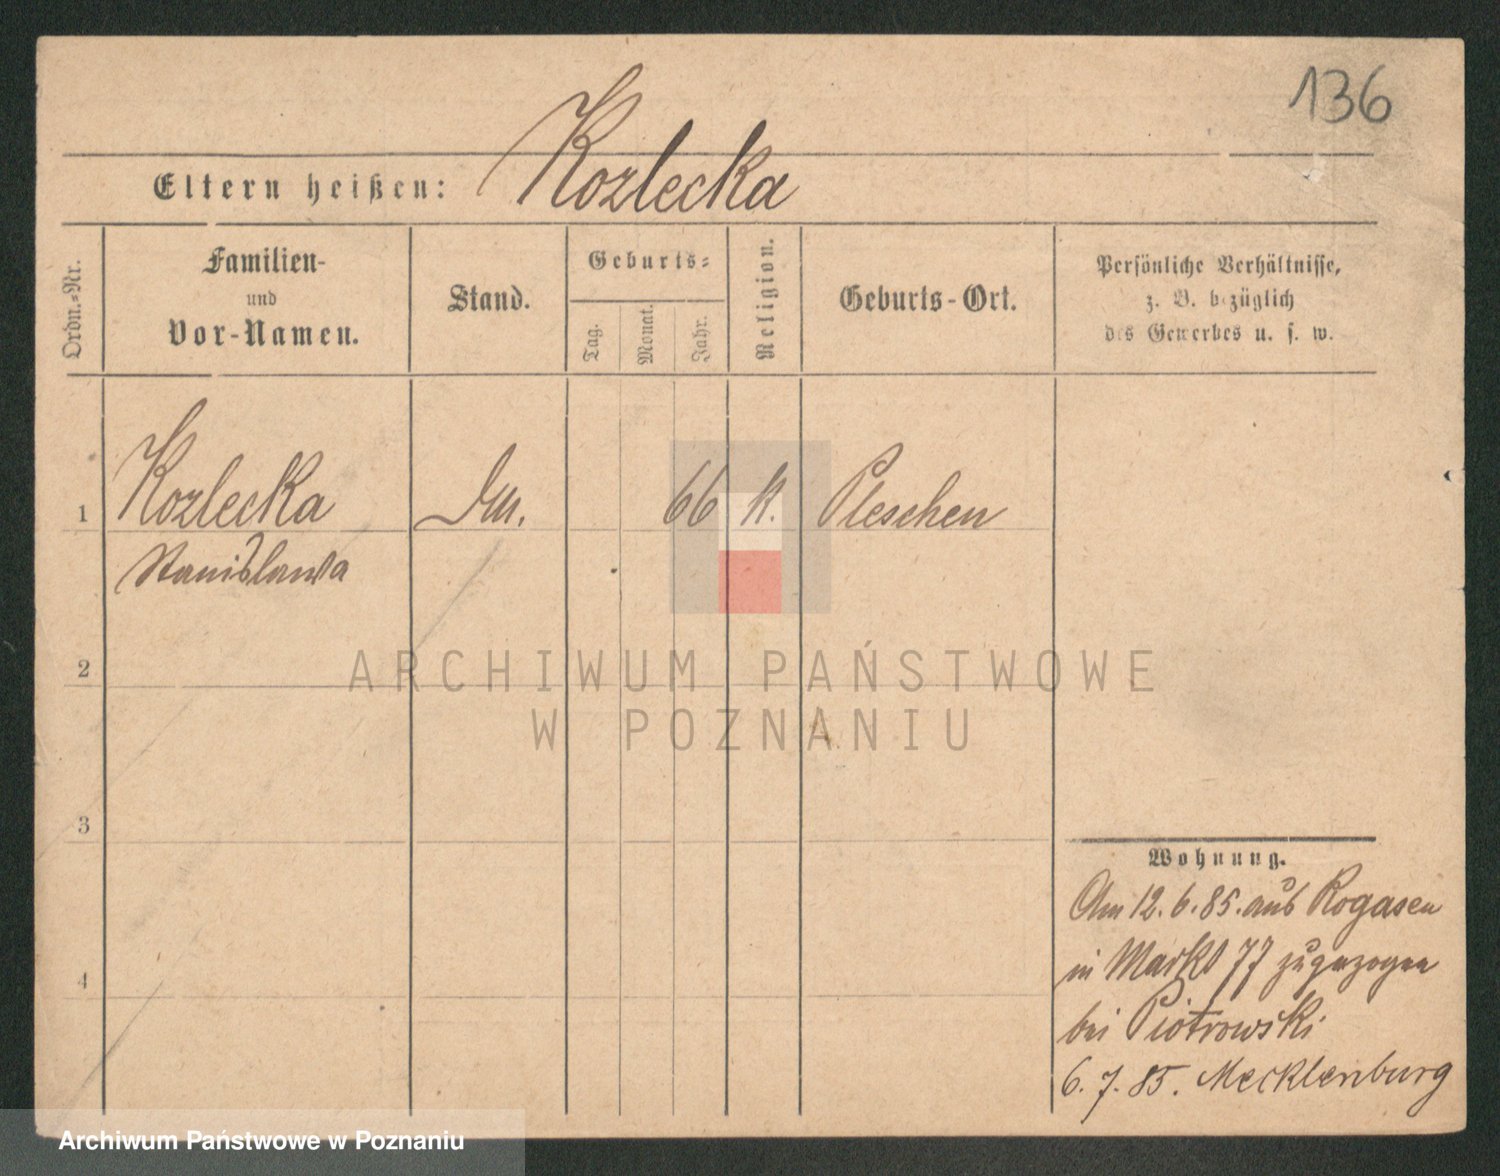 136
Eltern heißen: Kozlecka
Ordn.-Nr.
Familien-
und
Vor-Namen.
Stand.
Geburts-
Tag.
Monat.
Jahr.
Religion.
Geburts-Ort.
Persönliche Verhältnisse,
z. B. bezüglich
des Gewerbes u. s. w.
1 Kozlecka 66 k. Pleschen
Stanislawa
2
ARCHIWUM PAŃSTWOWE
W POZNANIU
3
4
Wohnung.
Am 12. 6. 85. aus Rogasen
in Markt 77 zugezogen
bei Piotrowski
6. 7. 85. Mecklenburg
Archiwum Państwowe w Poznaniu